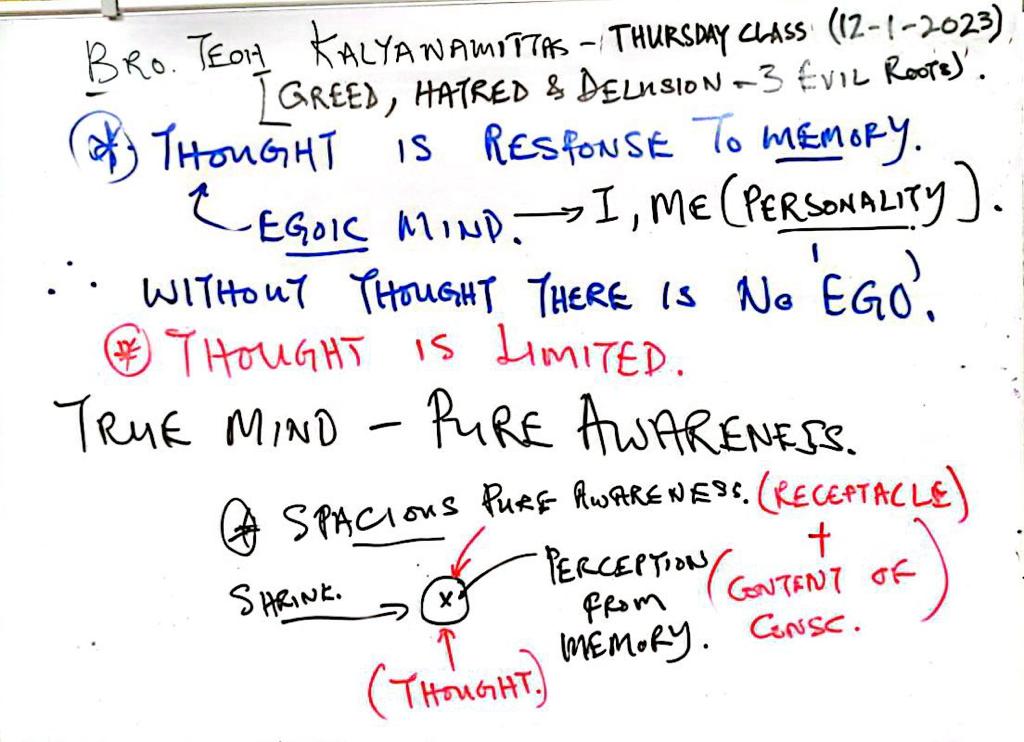 BRO. TEOH KALYANAMITTAS - THURSDAY CLASS (12-1-2023).
[GREED, HATRED & DELUSION - 3 EVIL ROOTS).
(*) THOUGHT IS RESPONSE TO MEMORY.
EGOIC MIND. → I, ME (PERSONALITY).
∴ WITHOUT THOUGHT THERE IS NO 'EGO'.
(*) THOUGHT IS LIMITED.
TRUE MIND - PURE AWARENESS.
(*) SPACIOUS PURE AWARENESS. (RECEPTACLE)
+
SHRINK. → (x) PERCEPTION (CONTENT OF
FROM CONSC.)
MEMORY.
(THOUGHT.)